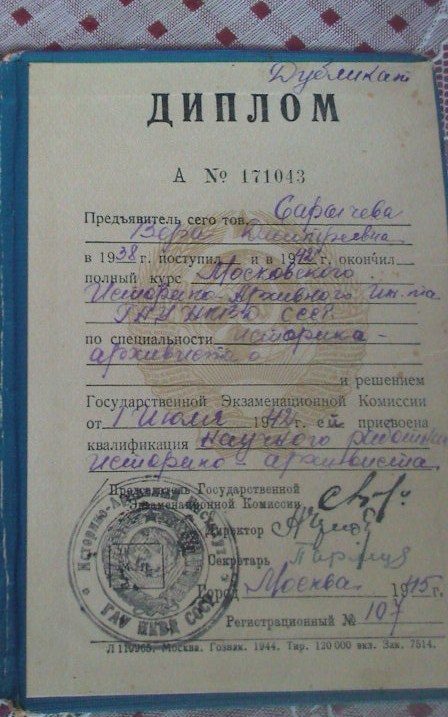 Дубликат
ДИПЛОМ
А № 171043
Предъявитель сего тов. Сарычева
Вера Дмитриевна
в 1938 г. поступил и в 1942 г. окончил
полный курс Московского
Историко-Архивного Ин-та
ГАУ НКВД СССР
по специальности историка-
архивиста
и решением
Государственной Экзаменационной Комиссии
от 1 июля 1942 г. ей присвоена
квалификация научного работника
историко-архивиста.
Председатель Государственной
Экзаменационной Комиссии
Директор
Секретарь
Город Москва 1945 г.
Регистрационный № 107
Историко-Архивный Институт
ГАУ НКВД СССР
Л 110965. Москва. Гознак. 1944. Тир. 120 000 экз. Зак. 7514.